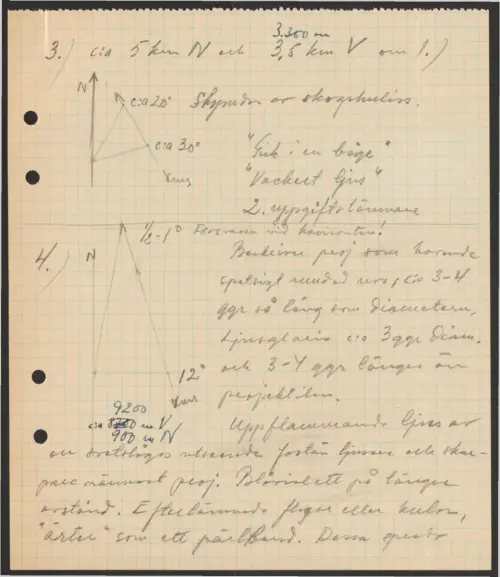 3.300 m
3.) c:a 5 km N och 3,5 km V om 1.)
N
c:a 20° Skymdes av skogshuliss.
c:a 30°
"Gick i en båge"
Kurs
"Vackert ljus"
2. uppgiftslämnare
1/2-1° Försvann vid horisonten!
4.) N
Beskriver proj som varande
spetsigt rundad ; c:a 3-4
ggr så lång som diametern,
c:a 3 ggr diam.
och 3-4 ggr längre än
12°
projektilen.
Kurs
9200
c:a m V
900 m N
Uppflammande ljus av
en utseende ljusare och
närmast proj. Blåviolett på längre
avstånd. Efterlämnade flagor eller kulor,
"ärter" som ett pärlband. Dessa